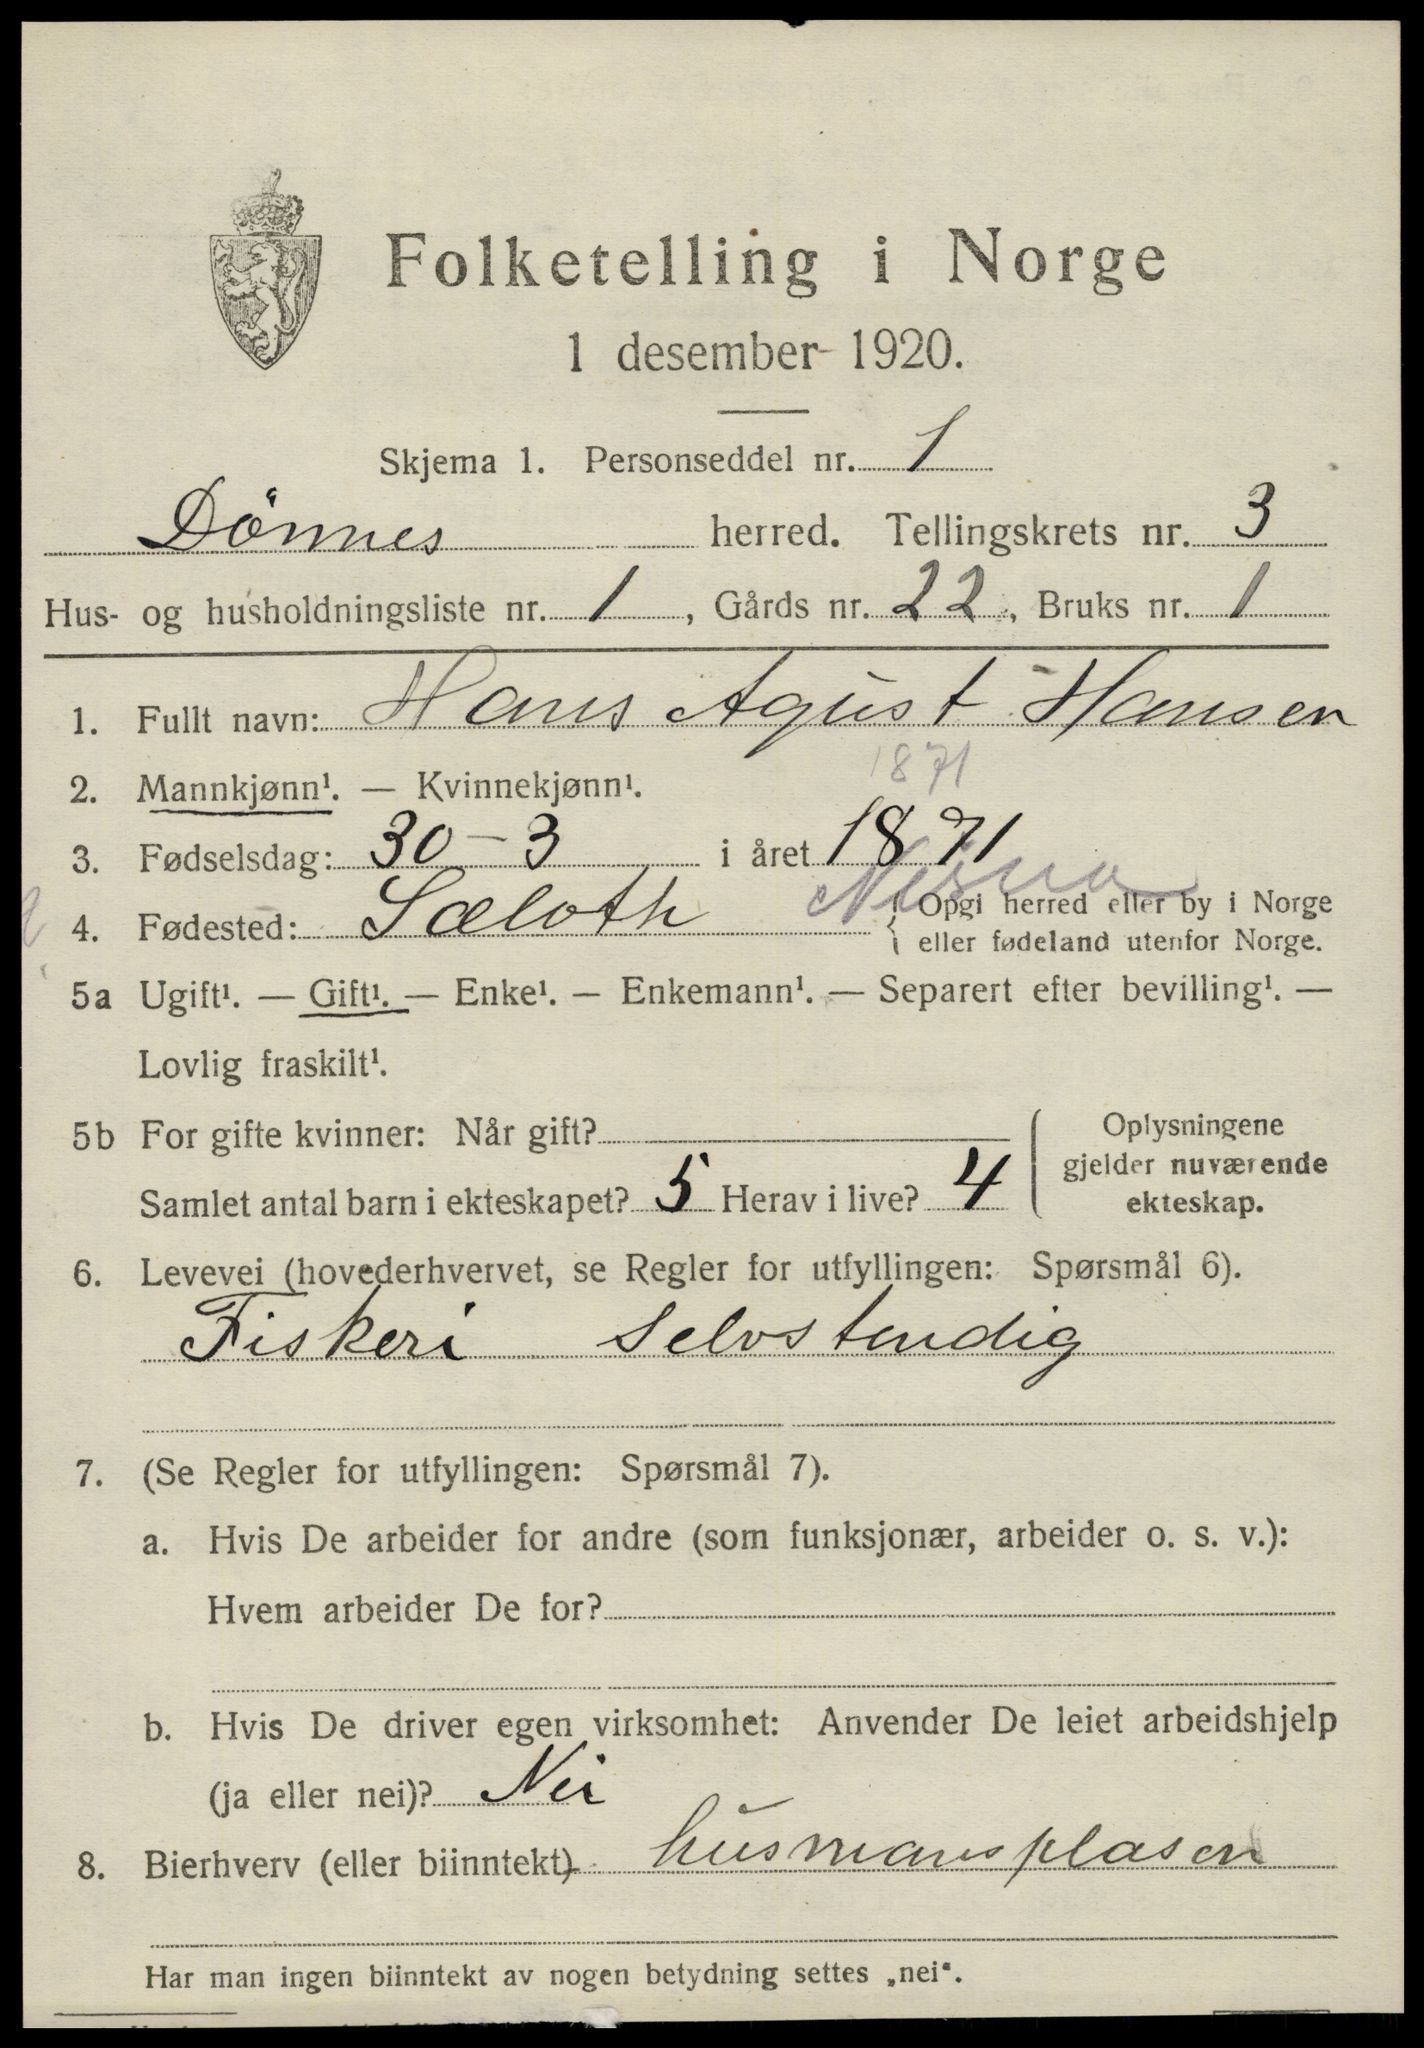 Folketelling i Norge
1 desember 1920.
Skjema 1. Personseddel nr. 1
Dönnes herred. Tellingskrets nr. 3
Hus- og husholdningsliste nr. 1, Gårds nr. 22, Bruks nr. 1
1. Fullt navn: Hans Agust Hansen
1871
2. Mannkjønn¹. — Kvinnekjønn¹.
3. Fødselsdag: 30-3 i året 1871
Nesna
4. Fødested: Sæloth { Opgi herred eller by i Norge
eller fødeland utenfor Norge.
5a Ugift¹. — Gift¹. — Enke¹. — Enkemann¹. — Separert efter bevilling¹. —
Lovlig fraskilt¹.
5b For gifte kvinner: Når gift?
Samlet antal barn i ekteskapet? 5 Herav i live? 4
Oplysningene
gjelder nuværende
ekteskap.
6. Levevei (hovederhvervet, se Regler for utfyllingen: Spørsmål 6).
Fiskeri Selvstendig
7. (Se Regler for utfyllingen: Spørsmål 7).
a. Hvis De arbeider for andre (som funksjonær, arbeider o. s. v.):
Hvem arbeider De for?
b. Hvis De driver egen virksomhet: Anvender De leiet arbeidshjelp
(ja eller nei)? Nei
8. Bierhverv (eller biinntekt) husmansplasen
Har man ingen biinntekt av nogen betydning settes „nei“.